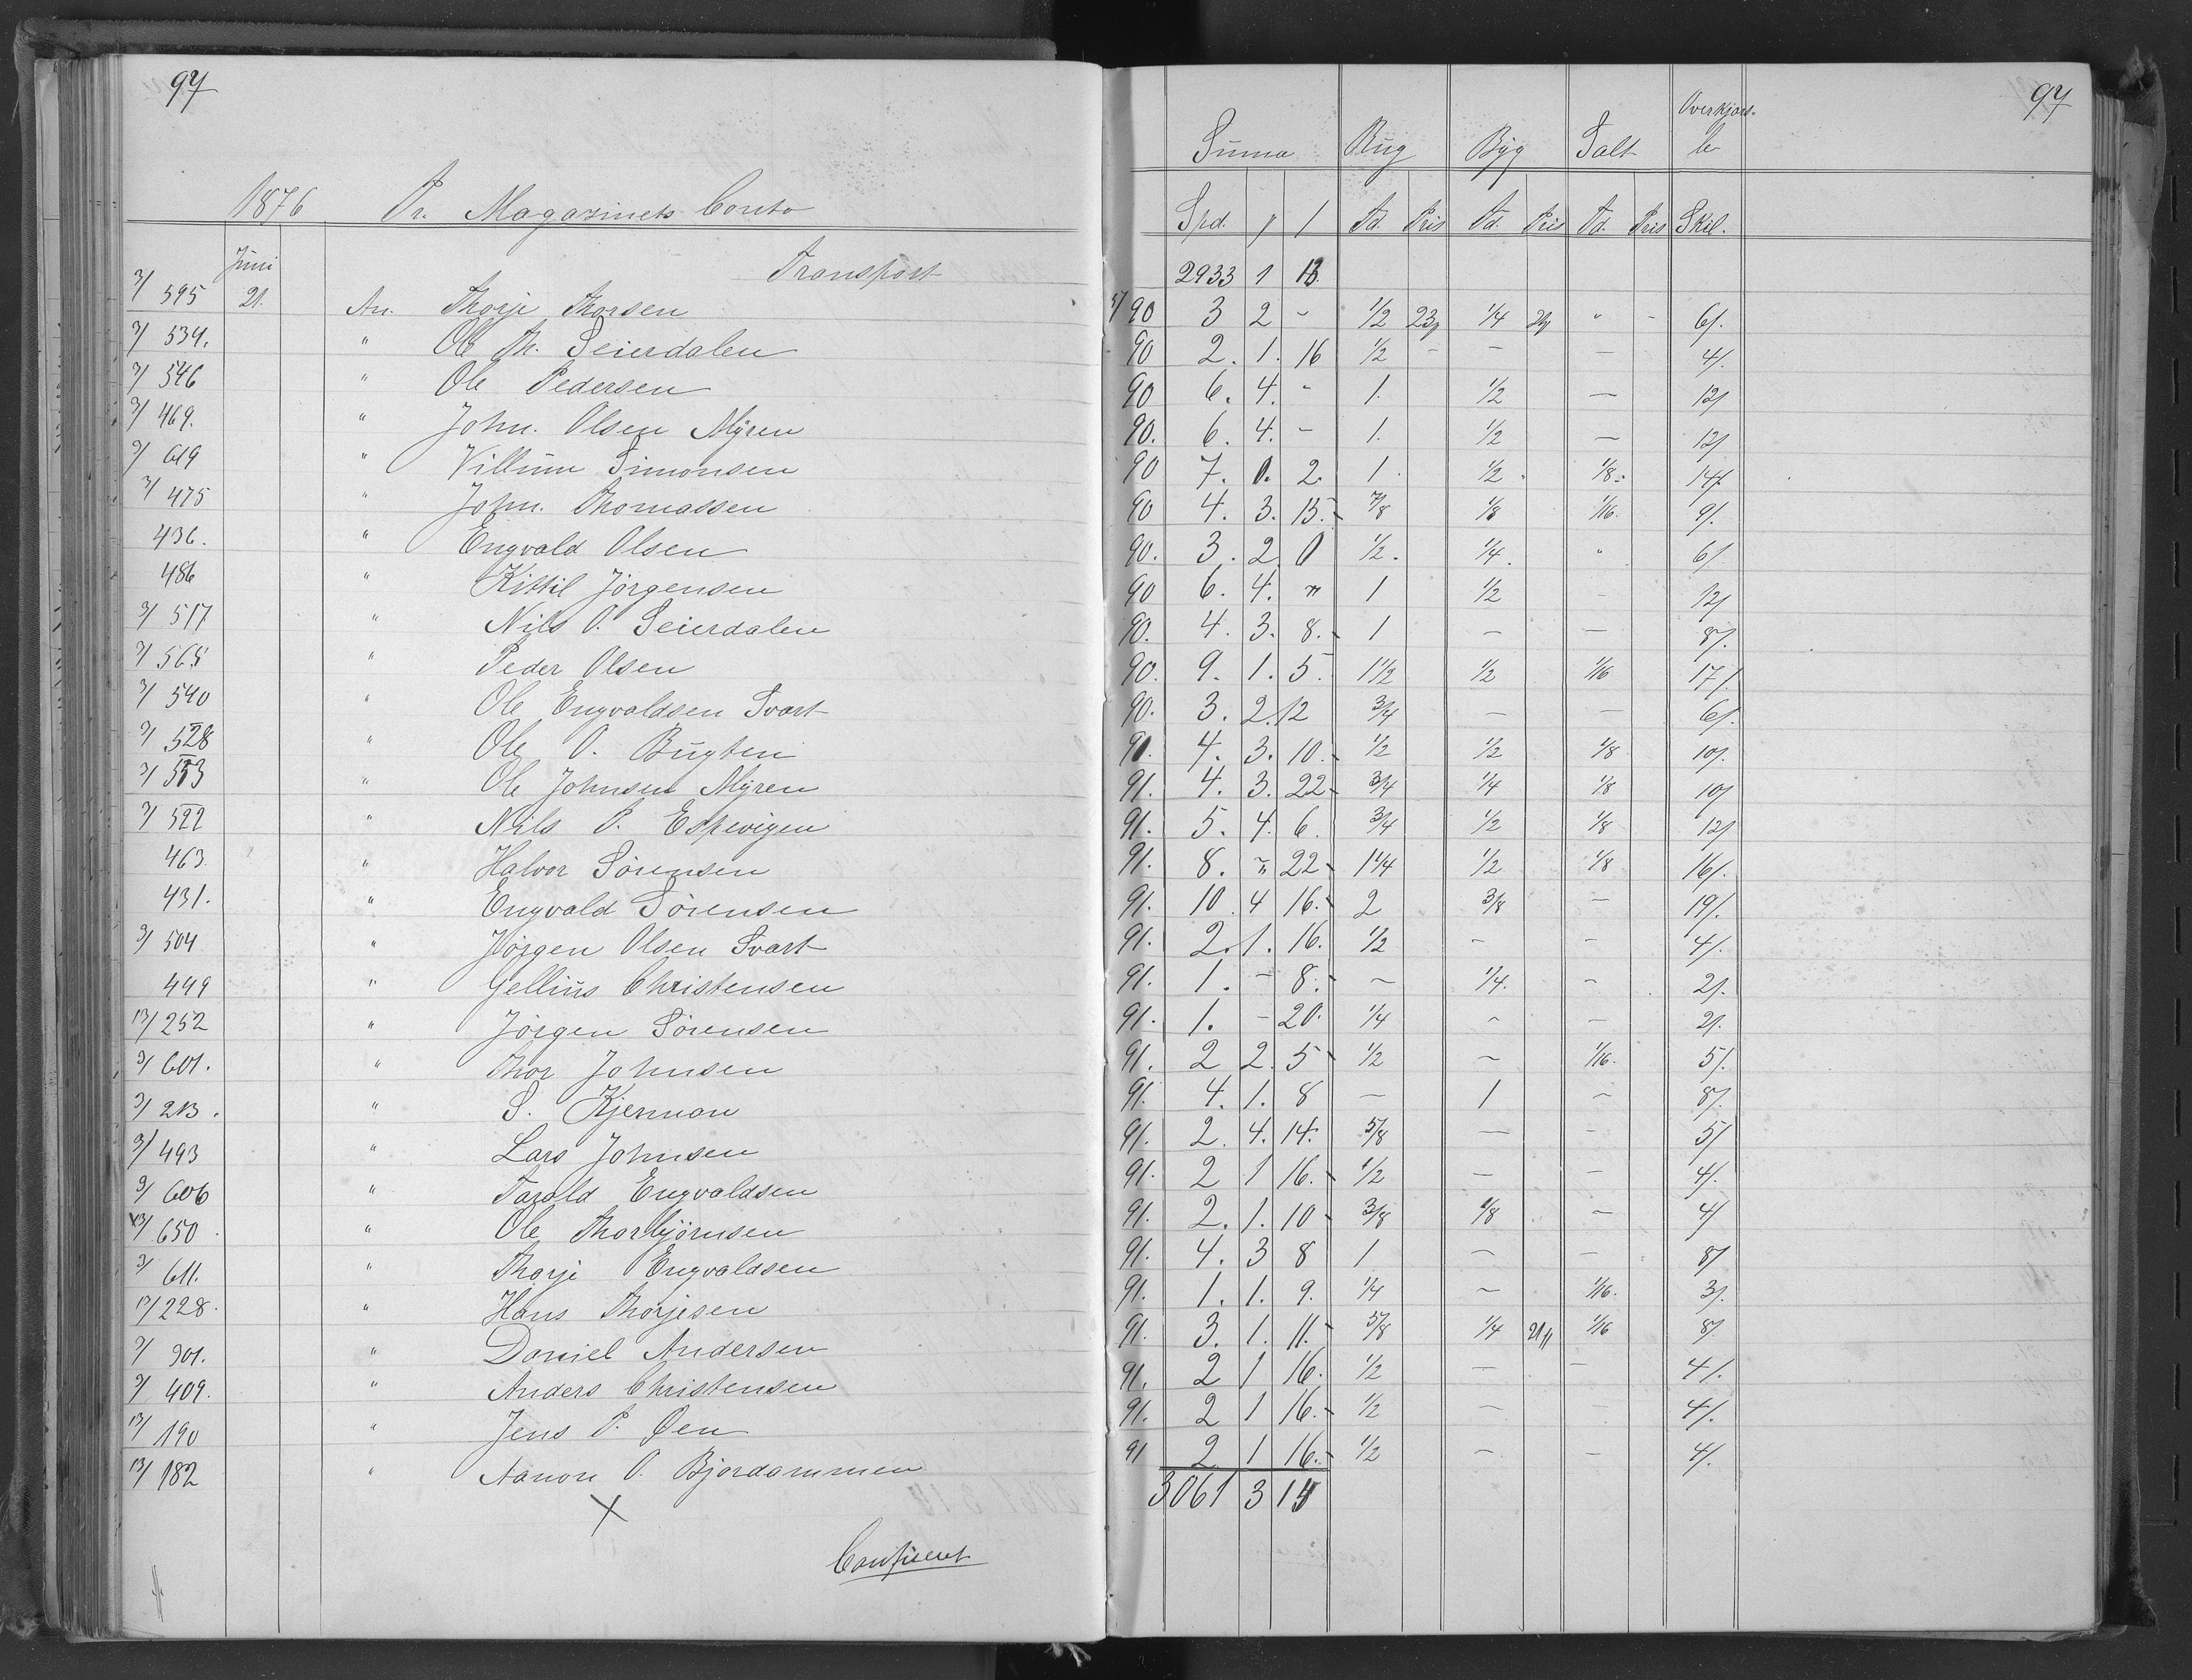 97
97
Overkjørs-
Suma Rug Byg Salt le
1876 Pr. Magazinets Conto Spd. Td. Pris Td. Pris Td. Pris Skil.
Juni Transport 2933 1 13.
3/ 595 21. An. Thorje Thorsen 90 3 2 - 1/2 23 1/4 " - 6/.
3/ 534. " Ole Th. Seierdalen 90 2. 1. 16 1/2 - - - 4/.
3/ 546 " Ole Pedersen 90 6. 4. - 1. 1/2 - 12/
3/ 469. " John. Olsen Myren 90. 6. 4. - 1. 1/2 - 12/
3/ 619 " Villum Simonsen 90 7. 0. 2. 1. 1/2. 1/8. 14/.
3/ 475 " John. Thomassen 90 4. 3. 15. 7/8 1/8 1/16. 9/.
436. " Engvald Olsen 90. 3. 2 0 1/2. 1/4. " 6/
486 " Kittil Jörgensen 90 6. 4. " 1 1/2 - 12/
3/ 517 " Nils O. Seierdalen 90. 4. 3. 8. 1 - - 8/.
3/ 565 " Peder Olsen 90. 9. 1. 5. 1 1/2 1/2 1/16 17/.
3/ 540 " Ole Engvaldsen Svart 90. 3. 2. 12 3/4 - - 6/.
3/ 528 " Ole O. Bugten 90. 4. 3. 10. 1/2 1/2 1/8 10/.
3/ 553 " Ole Johnsen Myren 91. 4. 3. 22 3/4 1/4 1/8 10/
3/ 522 " Nils P. Espevigen 91. 5. 4. 6. 3/4 1/2 1/8 12/
463. " Halvor Sörensen 91. 8. " 22 1 1/4 1/2 1/8 16/.
431. " Engvald Sörensen 91. 10. 4 16. 2 3/8 - 19/.
3/ 504 " Jörgen Olsen Svart 91. 2. 1. 16. 1/2 - - 4/.
449 " Gellius Christensen 91. 1. - 8. - 1/4. - 2/.
13/ 252 " Jörgen Sörensen 91. 1. - 20. 1/4 - - 2/.
3/ 601. " Thor Johnsen 91. 2 2. 5 1/2 - 1/16. 5/.
3/ 213. " S. Kjerman 91. 4. 1. 8 - 1 - 8/.
3/ 493 " Lars Johnsen 91. 2. 4. 14. 5/8 - - 5/
3/ 606 " Tarald Engvaldsen 91. 2 1 16. 1/2 - - 4/.
13/ 650 " Ole Thorbjörnsen 91. 2. 1. 10 3/8 1/8 - 4/
3/ 611. " Thorje Engvaldsen 91. 4. 3 8 1 - - 8/
13/ 228. " Hans Thorjesen 91. 1. 1. 9. 1/4 - 1/16. 3/.
3/ 901. " Daniel Andersen 91. 3. 1. 11. 5/8 1/4 21 1/16 8/.
3/ 409. " Anders Christensen 91. 2 1 16. 1/2 - - 4/.
13/ 190 " Jens P. Öen 91. 2 1 16. 1/2 - - 4/.
13/ 182 " Aanon O. Bjordammen 91 2 1 16. 1/2 - - 4/.
3061 3 14